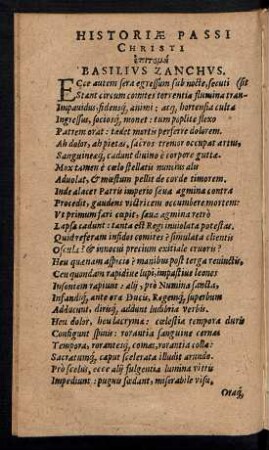 HISTORIÆ PASSI
CHRISTI
ἐπιτομὴ
BASILIUS ZANCHVS.
ECce autem sera egressum sub nocte, secuti (sit
Stant circum comites torrentia flumina tran-
Impauidus, fidensq́; animi: atq́; hortensia culta
Ingressus, sociosq́; monet: tum poplite flexo
Patrem orat: tædet mortis perferre dolorem.
Ah dolor, ah pietas, sacros tremor occupat artus,
Sanguineaq́; cadunt diuino è corpore gutta.
Mox tamen è cælo stellatis nuncius alis
Aduolat, & mæstum pellit de corde timorem.
Inde alacer Patris imperio sæua agmina contra
Procedit, gaudens victricem occumbere mortem:
Vt primum fari cupit, sæua agmina retrò
Lapsa cadunt: tanta est Regi inuiolata potestas.
Quid referam infidos comites? simulata clientis
Oscula? & iniqui precium exitiale cruoris?
Heu quenam aspicio è manibus post terga reuinctis,
Ceu quondam rapidiue lupi, impastiue leones
Insontem rapiunt: alij, prò Numina sancta,
Infandiq́; ante ora Ducis, Regemq́; superbum
Adducunt, dirisq́; addunt ludibria verbis.
Heu dolor, heu lacryma: cœlestia tempora duris
Configunt spinis: rorantia sanguine cernas
Tempora, rorantesq́; comas, rorantia colla:
Sacratumq́; caput scelerata illudit arundo.
Prò scelus, ecce alij fulgentia lumina vittis
Impediunt: pugnis fœdant, miserabile visu,
Oraq́;